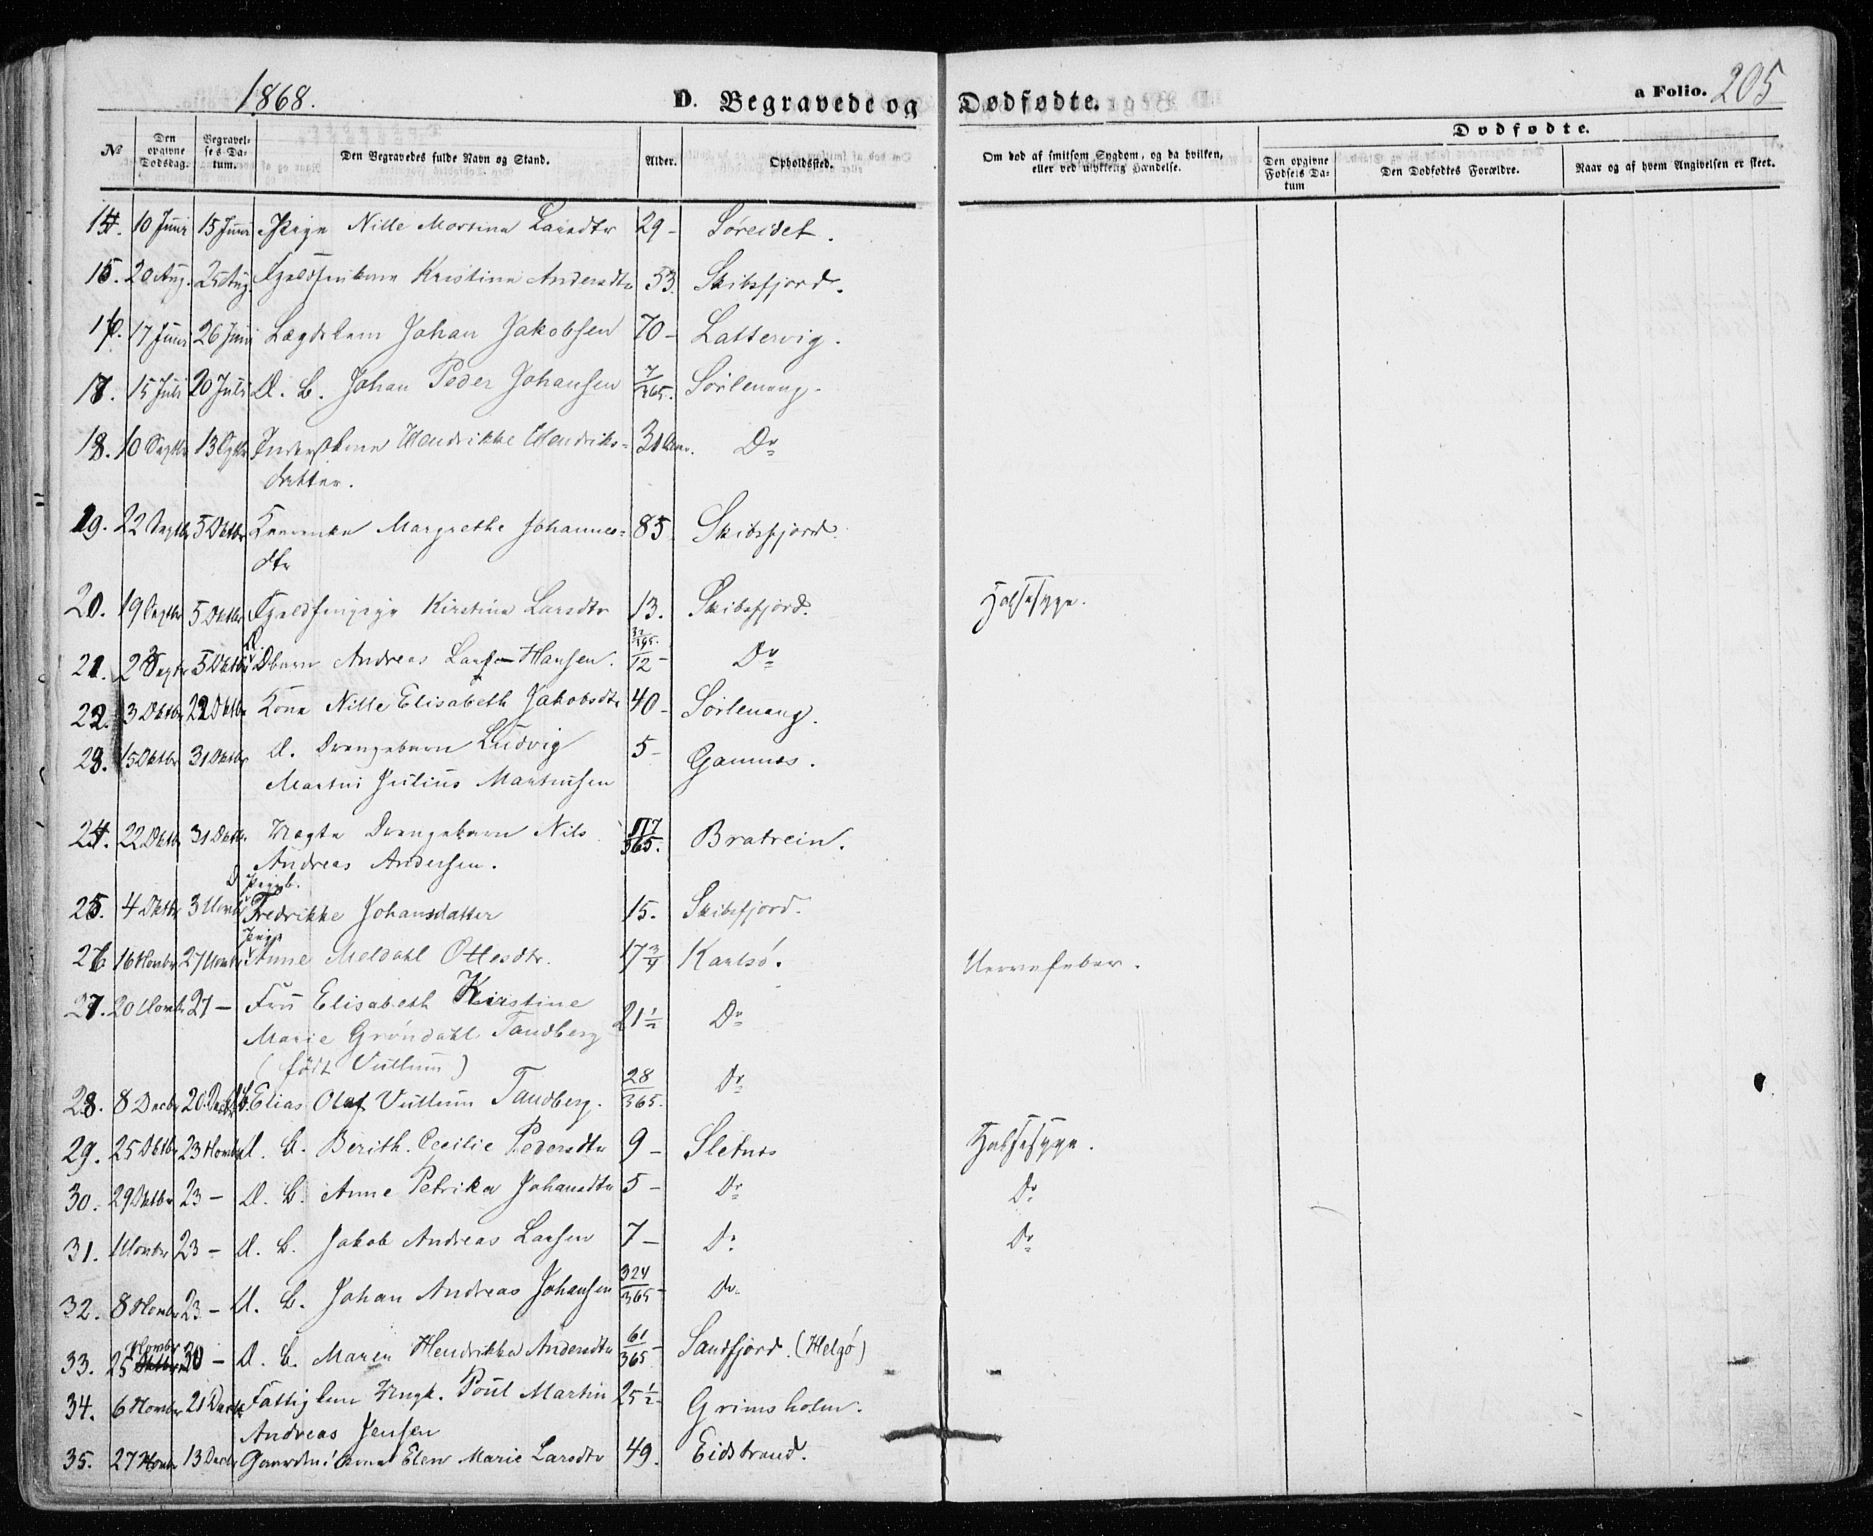 1868. D. Begravede og Dødfødte. a Folio. 205
Dødfødte.
No Den opgivne Dødsdag. Begravelses Datum. Den Begravedes fulde Navn og Stand. Alder. Opholdssted. Om død af smitsom Sygdom, og da hvilken, eller ved ulykkelig Hændelse. Den opgivne Fødsels Datum Den Dødfødtes Forældre. Naar og af hvem Angivelsen er skeet.
14. 10 Juni 15 Juni Pige Nille Martina Larsdtr 29 - Søreidet.
15. 20 Aug. 25 Aug. Kristina Andersdtr 53. Skibsfjord.
16. 17 Juni 26 Juni Lægdslem Johan Jakobsen 70 - Lattervig.
17. 15 Juli 20 Juli D. B. Johan Peder Johansen 7/365. Sörlenang.
18. 10 Septbr 13 Septbr Hendrikke Hendriks= 31 Aar. Do
datter.
19. 22 Septbr 5 Oktbr Margrethe Johannes= 85 Skibsfjord.
dtr
20. 19 Septbr 5 Oktbr Kirstina Larsdtr 13. Skibsfjord. Halssyge.
21. Septbr 5 Oktbr Dbarn Andreas Hansen. Do
22. 3 Oktbr 22 Oktbr Kona Nille Elisabeth Jakobsdtr 40 - Sörlenang.
23. 15 Oktbr 31 Oktbr D. Drengebarn Ludvig 5 - Gamnes.
Martin Julius Martinsen
24. 22 Oktbr 31 Oktbr. Uægte Drengebarn Nils 117/365. Bratrein.
Andreas Andersen.
D Pigeb.
25. 4 Oktbr 3 Novbr Fredrikke Johansdatter 15. Skibsfjord.
Pige
26 16 Novbr 27 Novbr Anne Meldahl Ottesdtr. 17 3/4 Karlsö. Nervefeber.
27. 20 Novbr 27 - Fru Elisabeth Kirstine 21 1/2 Do
Marie Gröndahl Tandberg
(födt Vullum)
28. 8 Decbr 20 Decbr D.b. Elias Olaf Vullum Tandberg. 28/365. Do
29. 25 Oktbr 23 Novbr D. B. Berith Cecilie Pedersdtr 9 - Sletnes Halssyge.
30. 29 Oktbr 23 - D. B. Anne Petrika Johansdtr 5 - Do Do
31. 1 Novbr 23 - D. B. Jakob Andreas Larsen 7 - Do Do
32. 8 Novbr 23 - D. B. Johan Andreas Johansen 324/365 - Do
Novbr
33. 25 Oktbr 30 - D. B. Maren Hendrikka Andersdtr 61/365 - Sandfjord. (Helgø)
34. 6 Novbr 21 Decbr Fattiglem Ungk. Poul Martin 25 1/2 - Grimsholm.
Andreas Jensen
35. 27 Novbr 13 Decbr Gaardm.kona Elen Marie Larsdtr 49. Eidstrand.